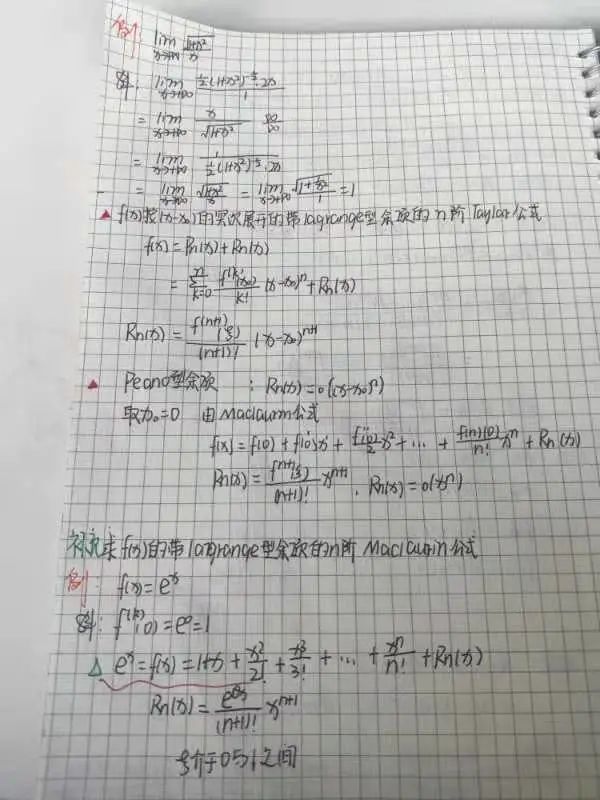 例 lim x→+∞ √(1+x²)/x
解: lim x→+∞ ½(1+x²)^(-½)·2x / 1
= lim x→+∞ x/√(1+x²) ∞/∞
= lim x→+∞ 1/(½(1+x²)^(-½)·2x)
= lim x→+∞ √(1+x²)/x = lim x→+∞ √(1+1/x²)/1 = 1
▲ f(x)按(x-x₀)的幂次展开的带lagrange型余项的n阶Taylor公式
f(x) = Pn(x) + Rn(x)
= Σ(k=0→n) f^(k)(x₀)/k! (x-x₀)^n + Rn(x)
Rn(x) = f^(n+1)(ξ)/(n+1)! (x-x₀)^(n+1)
▲ Peano型余项 : Rn(x) = o((x-x₀)^n)
取x₀=0 由Maclaurin公式
f(x) = f(0) + f'(0)x + f''(0)/2 x² + … + f(n)(0)/n! x^n + Rn(x)
Rn(x) = f^(n+1)(ξ)/(n+1)! x^(n+1) , Rn(x) = o(x^n)
求f(x)的带lagrange型余项的n阶Maclaurin公式
例: f(x) = e^x
解: f^(k)(0) = e^0 = 1
△ e^x = f(x) = 1+x + x²/2! + x³/3! + … + x^n/n! + Rn(x)
Rn(x) = e^(θx)/(n+1)! x^(n+1)
介于0与1之间